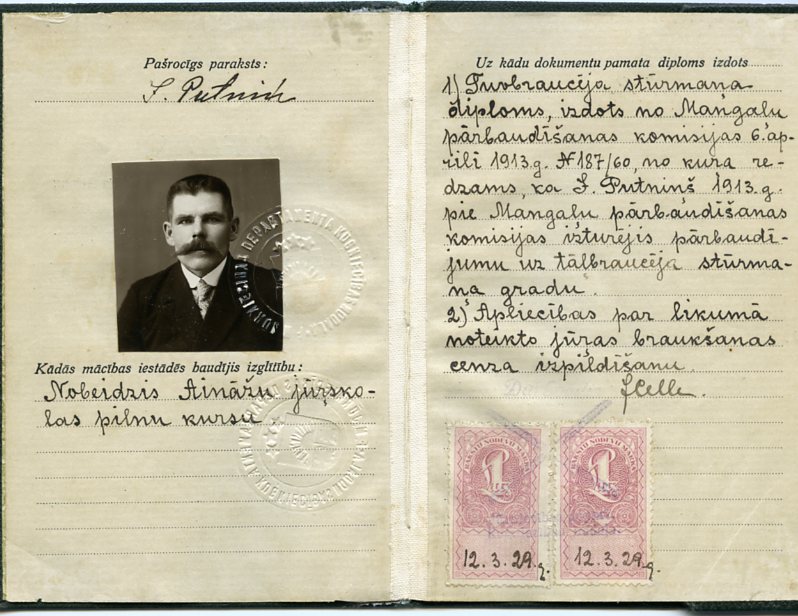 Pašrocīgs paraksts:
Putniņ
Kādās mācības iestādēs baudījis izglītību:
Nobeidzis Ainažu jūrsko-
las pilnu kursu.
Uz kādu dokumentu pamata diploms izdots
1) Tuvbraucēja stūrmaņa
diploms, izdots no Mangaļu
pārbaudīšanas komisijas 6. ap-
rilī 1913.g. N 187/60, no kura re-
dzams, ka Putniņš 1913.g.
pie Mangaļu pārbaudīšanas
komisijas izturējis pārbaudī-
jumu uz tālbraucēja stūrma-
ņa gradu.
2) Apliecības par likumā
noteikto jūras braukšanas
cenza izpildīšanu.
1 LS
12.3.29.g.
1 LS
12.3.29.g.